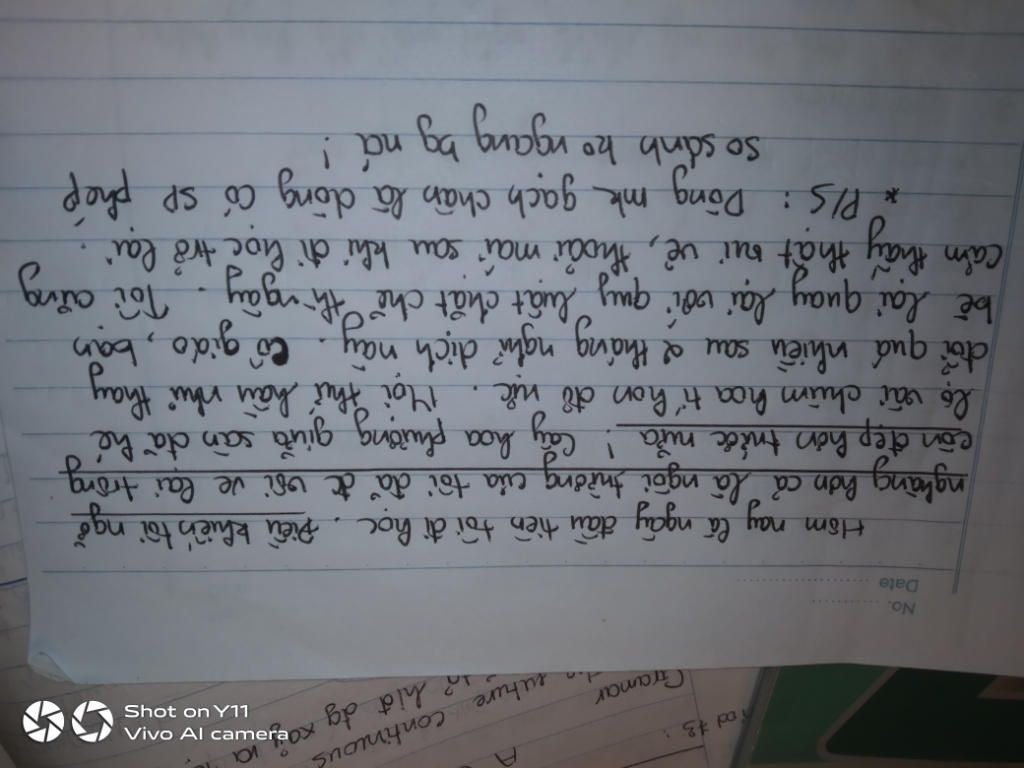 No.
Date
Hôm nay là ngày đầu tiên tôi đi học. Điều khiến tôi ngỡ
ngàng hơn cả là ngôi trường của tôi đã đc vôi ve lại trông
còn đẹp hơn trước nữa! Cây hoa phượng giữa sân đã hé
lộ vài chùm hoa tí hon đỏ rực. Mọi thứ hầu như thay
đổi quá nhiều sau 2 tháng nghỉ dịch này. Cô giáo, bạn
bè lại quay lại với quy luật chặt chẽ th ngày. Tôi cũng
cảm thấy thật vui vẻ, thoải mái sau khi đi học trở lại.
* P/S: Dòng mk gạch chân là dòng có SP phép
so sánh ko ngang bg ná!
Gramar
future continuous
hiđ đg xảy ra
Shot on Y11
Vivo AI camera